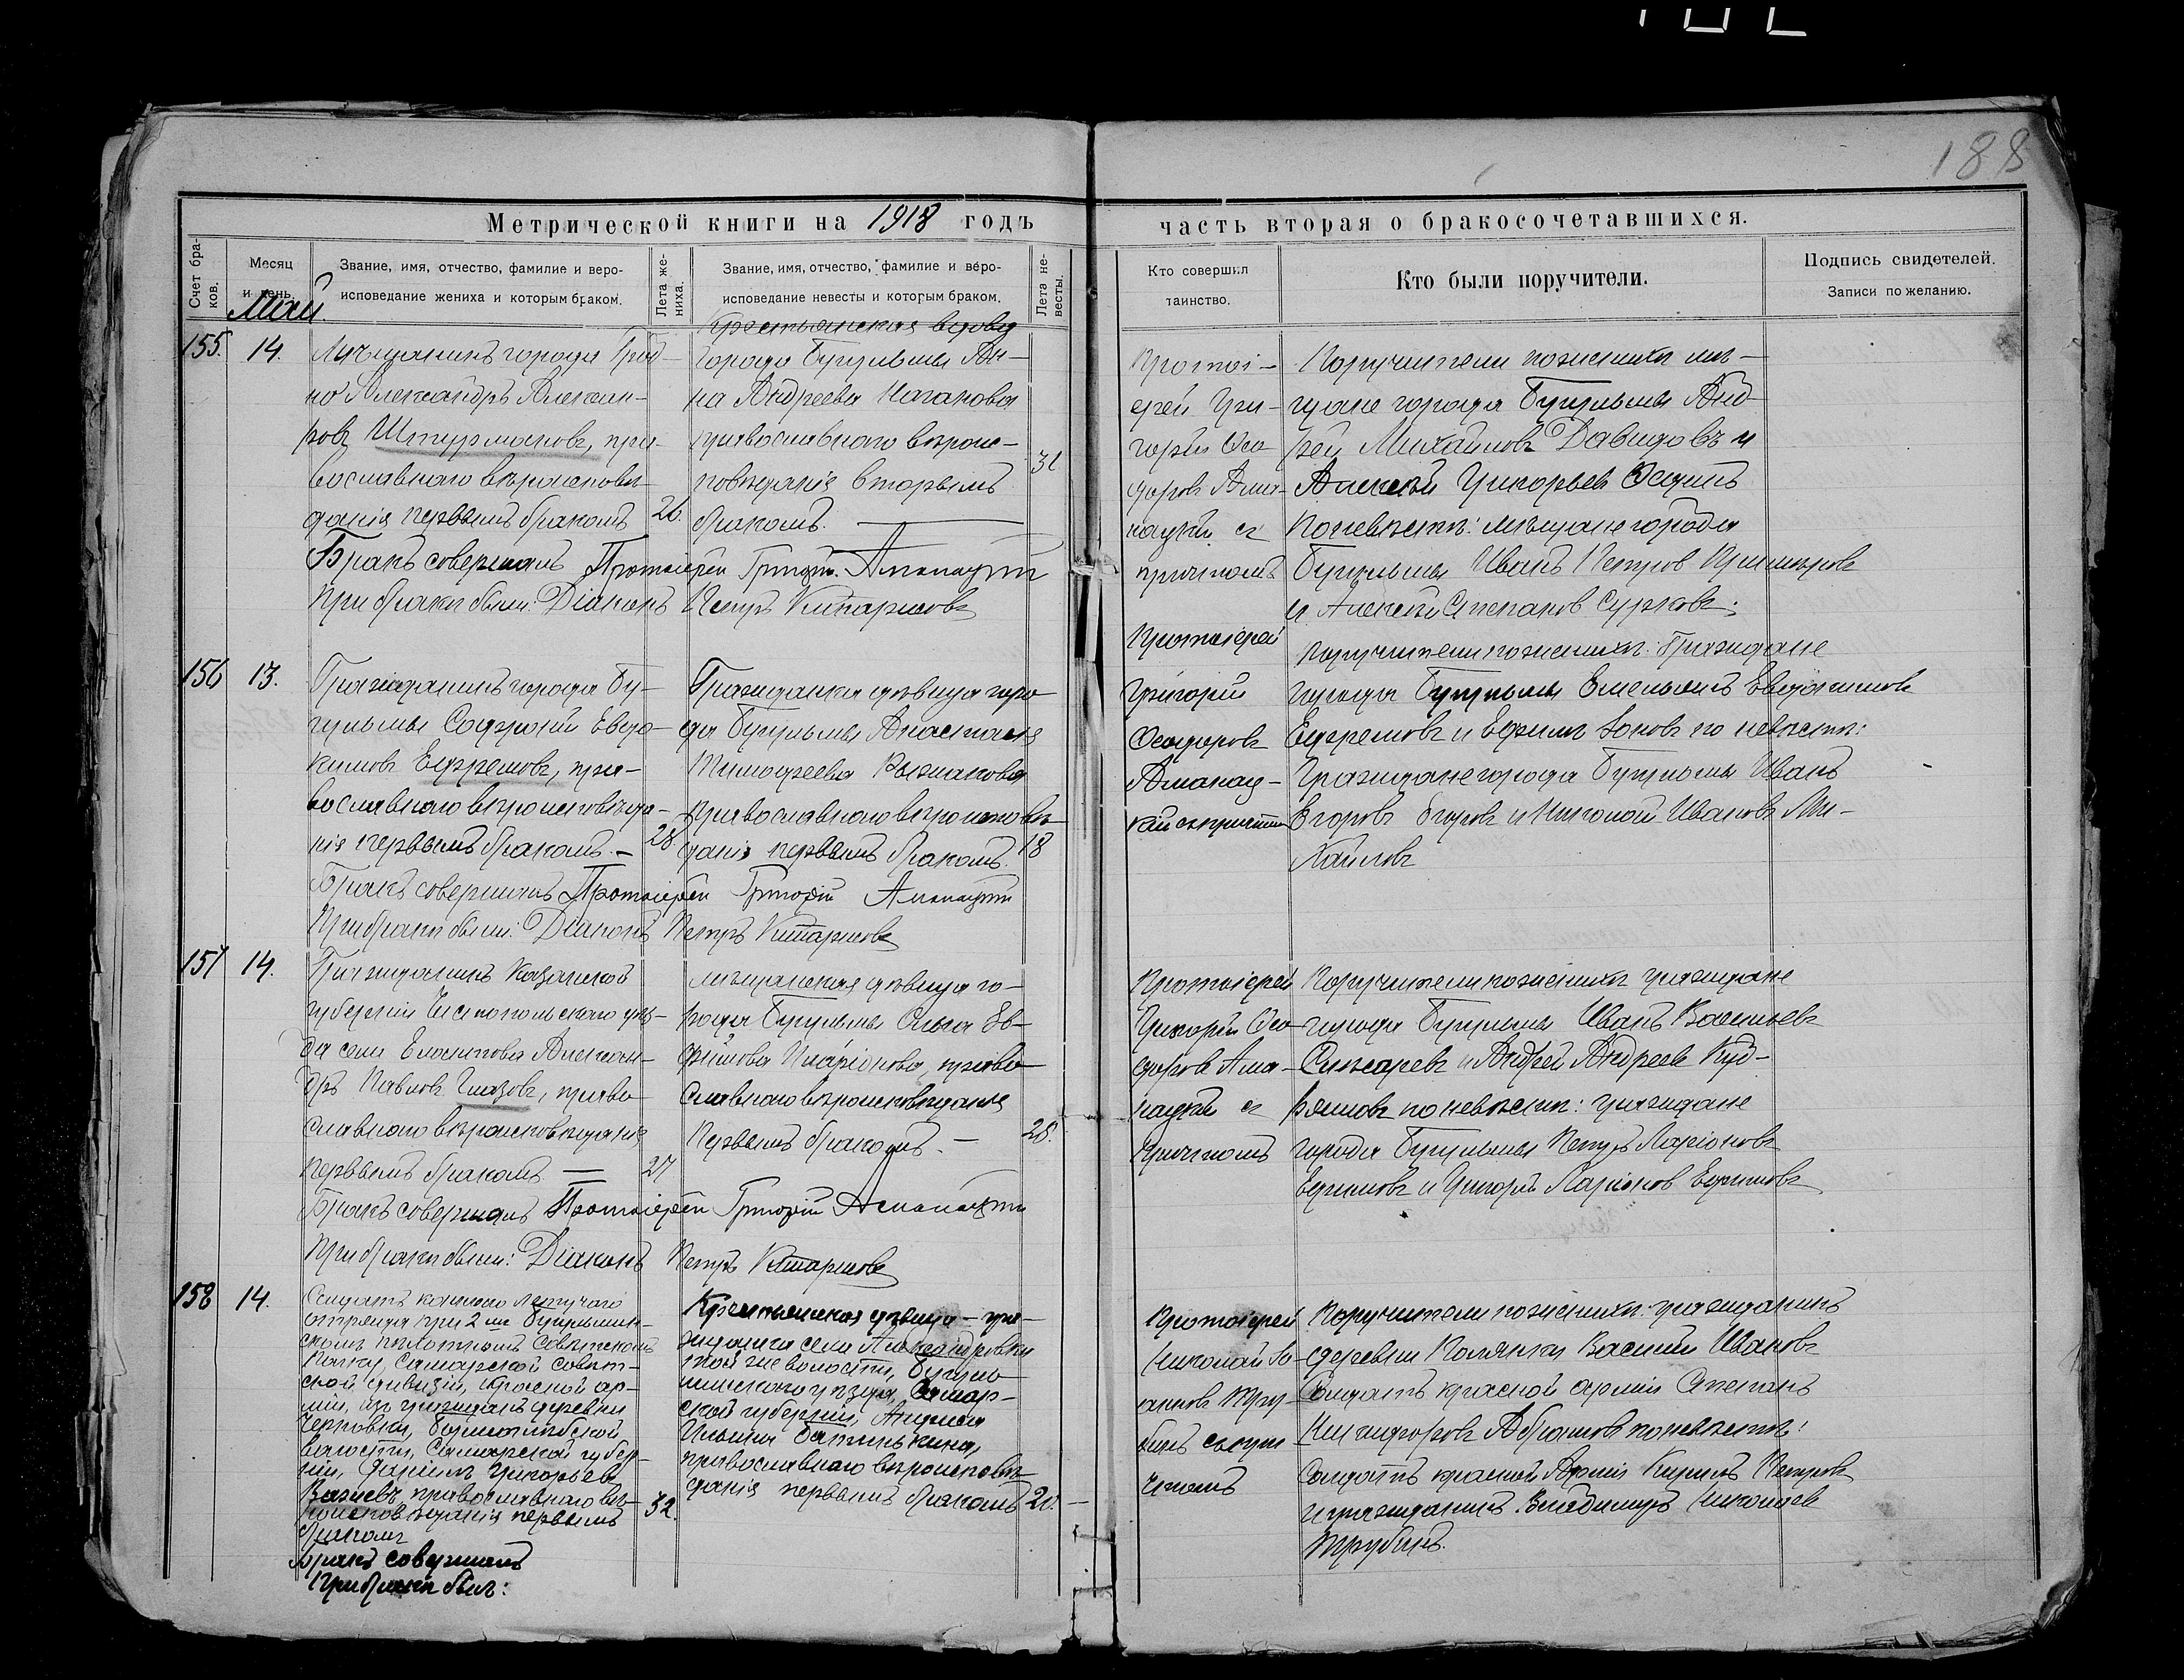 188
Метрической книги на 1918 годъ
часть вторая о бракосочетавшихся.
Счет браков.
Месяц и день.
Звание, имя, отчество, фамилие и вероисповедание жениха и которым браком.
Лета жениха.
Звание, имя, отчество, фамилие и вероисповедание невесты и которым браком.
Лета невесты.
Кто совершил таинство.
Кто были поручители.
Подпись свидетелей.
Записи по желанию.
Май.
155.
14.
Мѣщанинъ города
Александръ Алексан-
ровъ Штурмановъ, пра-
вославнаго вѣроисповѣ-
данія первымъ бракомъ
26.
Крестьянская вдова
города Бугульмы Ан-
на Андреева
православнаго вѣроис-
повѣданія вторымъ
бракомъ.
31
Протоі-
ерей Гри-
горій Ѳео-
доровъ Ама-
нацкій съ
причтомъ
Поручители по женихѣ мѣ-
щане города Бугульмы Анд-
рей Михайловъ Давидовъ и
Алексѣй Григорьевъ Осдинъ
По невѣстѣ: мѣщане города
Бугульмы Иванъ Петровъ
и Алексѣй Степановъ Сурковъ;
Бракъ совершалъ Протоіерей Григорій Аманацкій
При бракѣ были: Діаконъ Петръ Кипарисовъ
156
13.
Гражданинъ города Бу-
гульмы Софроній Евдо-
кимовъ Ефремовъ, пра-
вославнаго вѣроисповѣда-
нія первымъ бракомъ. —
28
Гражданка дѣвица горо-
да Бугульмы Анастасія
Тимофеева
православнаго вѣроисповѣ-
данія первымъ бракомъ.
18
Протоіерей
Григорій
Ѳеодоровъ
Аманац-
кій съ причтом
Поручители по женихѣ: Граждане
города Бугульмы Емельянъ Евдокимовъ
Ефремовъ и Ефимъ Зоновъ по невѣстѣ:
Граждане города Бугульмы Иванъ
Егоровъ Егоровъ и Николай Ивановъ Ми-
хайловъ
Бракъ совершалъ Протоіерей Григорій Аманацкій
При бракѣ были: Діаконъ Петръ Кипарисовъ
157
14.
Гражданинъ Казанской
губерніи Чистопольскаго уѣз-
да села Алексан-
дръ Павловъ Глазовъ, право-
славнаго вѣроисповѣданія
первымъ бракомъ —
27
мѣщанская дѣвица го-
рода Бугульмы Ольга Ев-
фимова Иларіонова, право-
славнаго вѣроисповѣданія
Первымъ бракомъ. —
28.
Протоіерей
Григорій Ѳео-
доровъ Ама-
нацкій съ
причтомъ
Поручители по женихѣ граждане
города Бугульмы Иванъ Васильевъ
и Андрей Андреевъ Куд-
ряшовъ по невѣстѣ: граждане
города Бугульмы Петръ Ларіоновъ
Ефимовъ и Григорій Ларіоновъ Ефимовъ
Бракъ совершалъ Протоіерей Григорій Аманацкій
При бракѣ были: Діаконъ Петръ Кипарисовъ
158
14.
Солдатъ коннаго летучаго
отряда при 2 мъ Бугульмин-
скомъ пѣхотномъ Совѣтскомъ
Полку, Самарской Совѣт-
ской дивизіи, красной ар-
міи, изъ гражданъ деревни
волости, Самарской губер-
ніи, Григорьевъ
православнаго вѣ-
роисповѣданія первымъ
бракомъ
32.
Крестьянская дѣвица - гра-
жданка села Александровки
той же волости, Бугуль-
минскаго уѣзда, Самар-
ской губерніи,
Ильина
православнаго вѣроисповѣ-
данія первымъ бракомъ
20. —
Протоіерей
Николай Іо-
анновъ Тру-
бинъ съ при
чтомъ
Поручители по женихѣ: гражданинъ
деревни Василій Ивановъ
Солдатъ красной арміи Степанъ
Никифоровъ Абрамовъ по невѣстѣ:
Солдатъ красной Арміи Кирилъ Петровъ
и гражданинъ Владимиръ Николаевъ
Трубинъ.
Бракъ совершалъ
При бракѣ былъ: